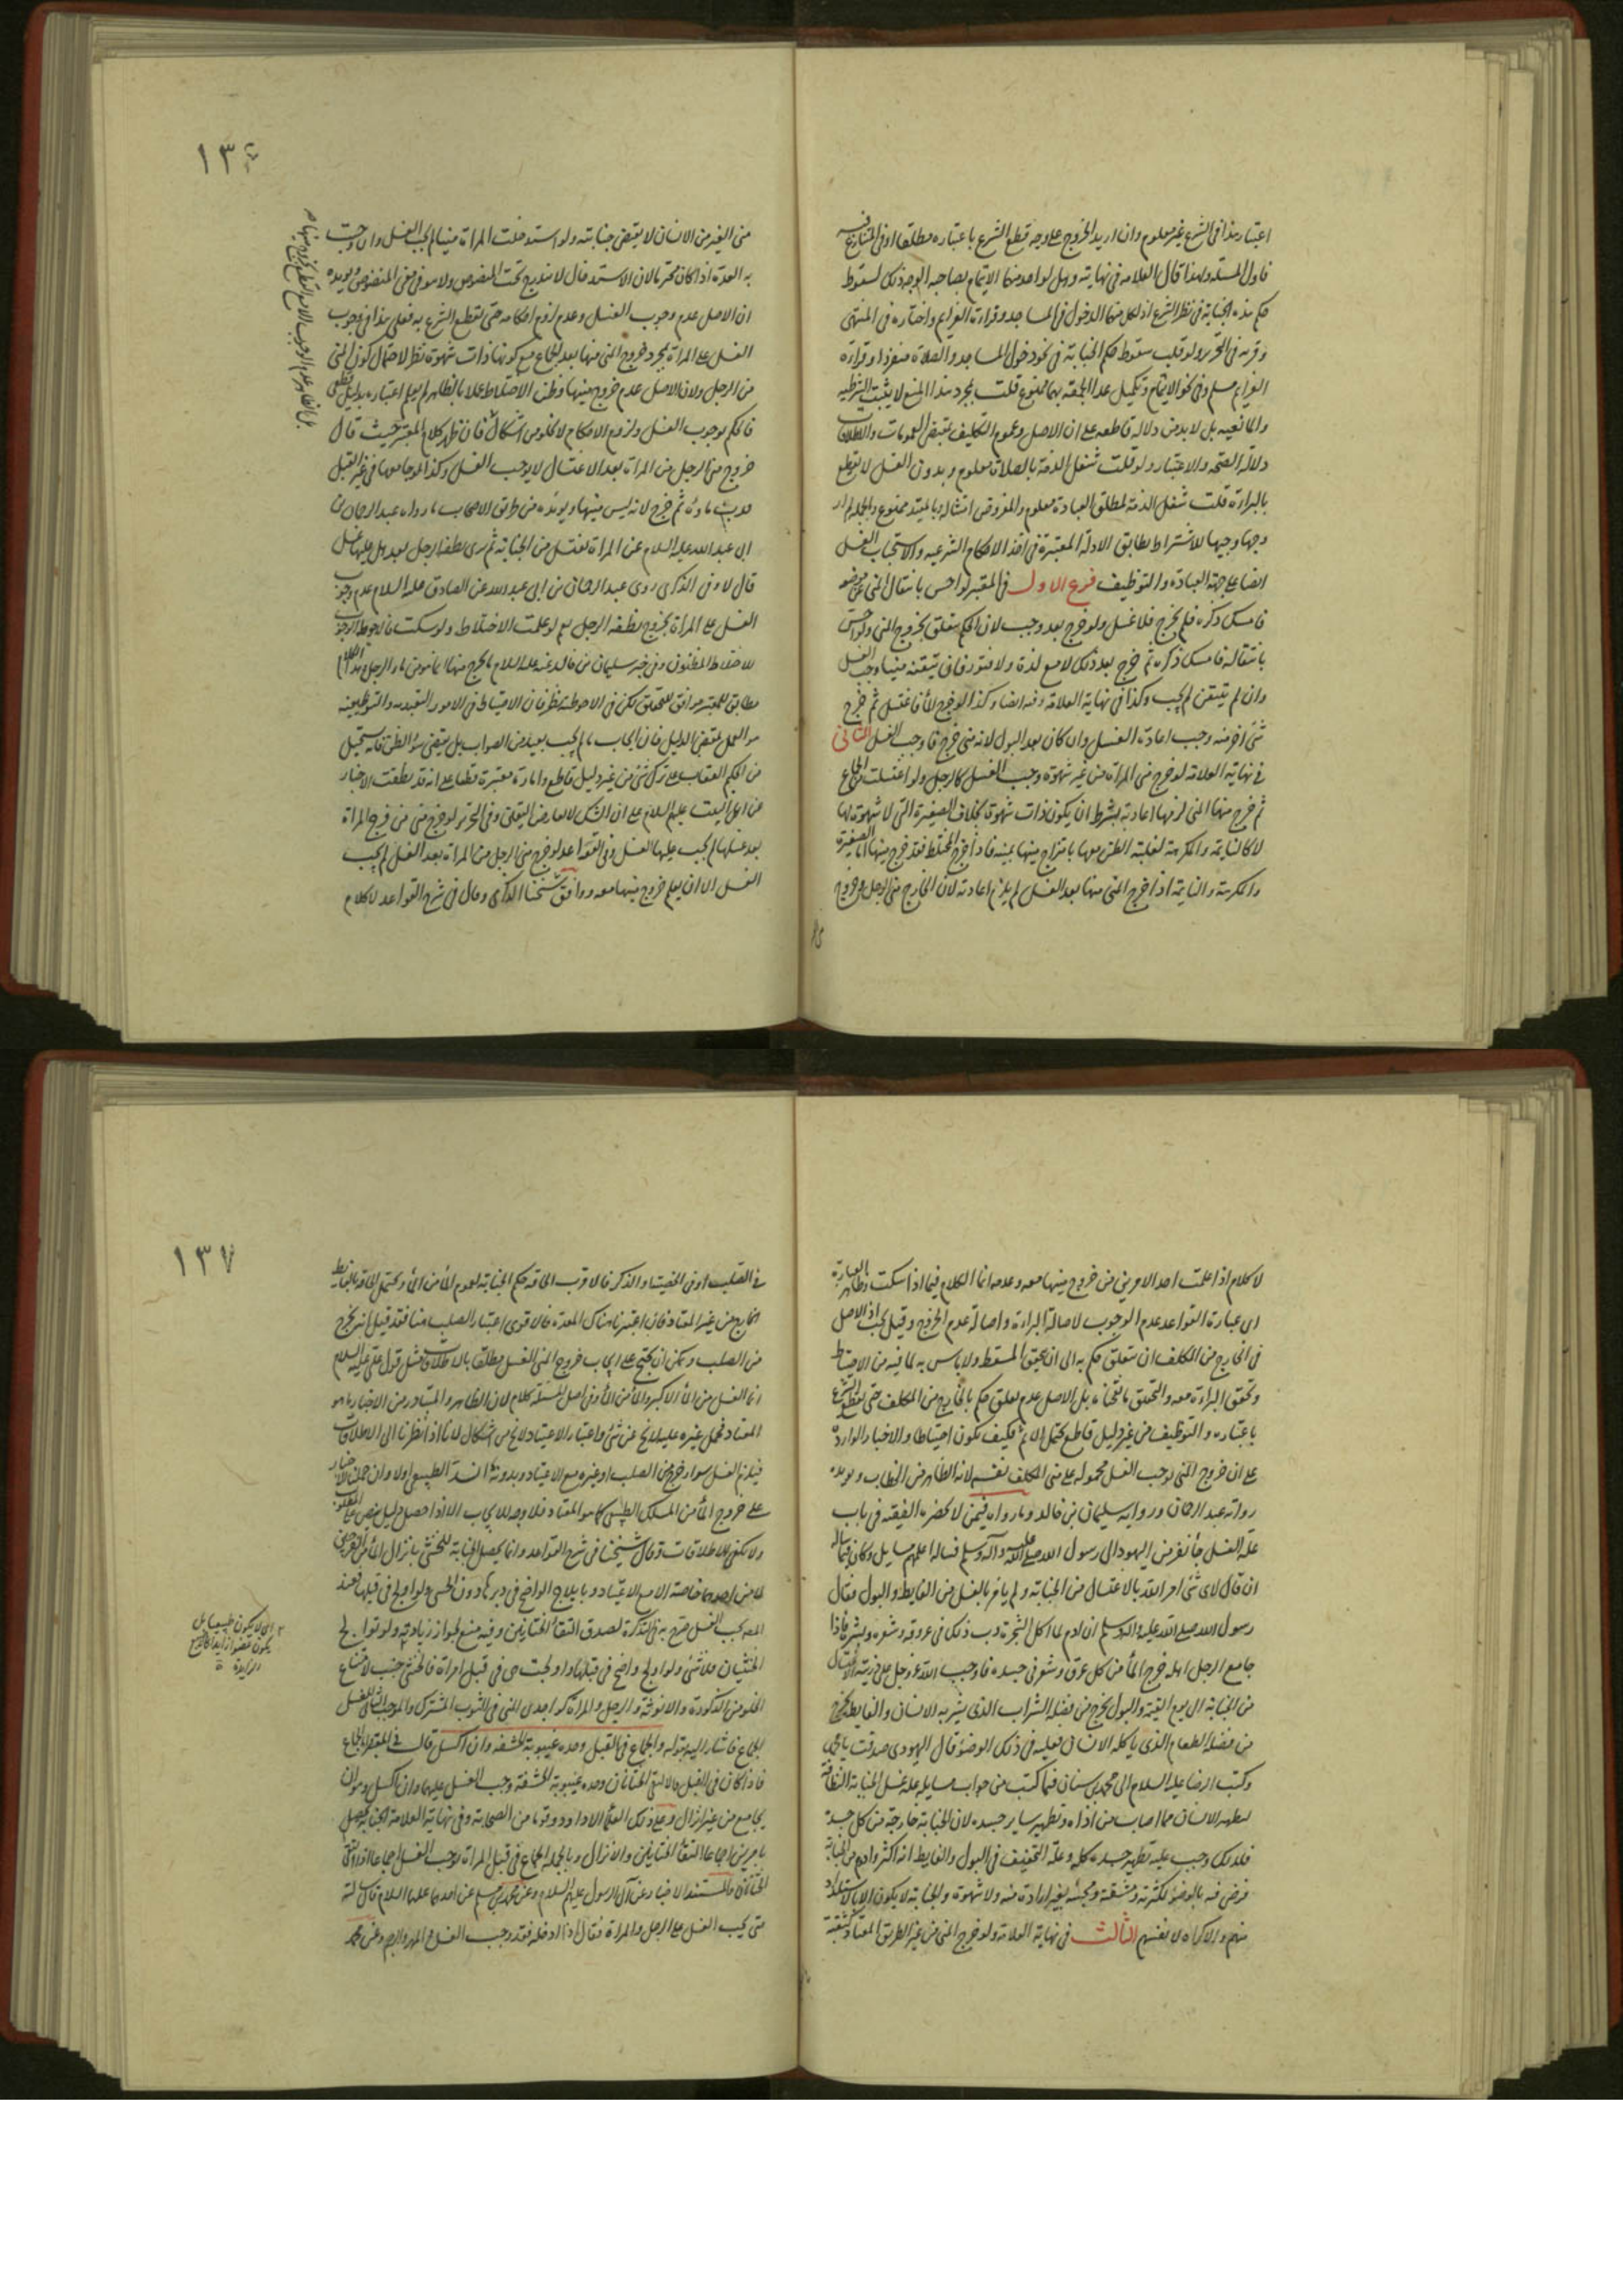 اعتبار هذا في الشرع غير معلوم وان اريد الخروج على وجه قطع الشرع باعتباره مطلقا او في المتنازع فيه
فاول المسئلة ولهذا قال العلامه في نهايته وهل لواحد منهما الايتمام بصاحبه الوجه ذلك لسقوط
حكم هذه الجنابة في نظر الشرع اذ لكل منهما الدخول في المساجد وقراءة العزايم واختاره في المنتهى
وقربه في التحرير ولو قلت سقوط حكم الجنابة في نحو دخول المساجد والصلاة منفردا وقراءة
العزايم مسلم وفي نحو الايتمام وتكميل عدد الجمعة بهما ممنوع قلت مجرد هذا المنع لا يثبت الشرطيه
والمانعيه بل لا بد من دلالة قاطعه على ان الاصل وعموم التكليف بمقتضى العمومات والاطلاقات
دلالة الصحة والاعتبار ولو قلت شغل الذمة بالصلاة معلوم وبدون الغسل لا يقطع
بالبراءة قلت شغل الذمة بمطلق العبادة معلوم والمفروض امتثاله وبالمقيد ممنوع وبالجمله لم ار
وجها وجيها للاشتراط يطابق الادلة المعتبرة في اخذ الاحكام الشرعيه والاستحباب الغسل
ايضا على جهة العبادة والتوظيف فرع الاول في المعتبر لو احس بانتقال المني عن موضعه
فامسك ذكره فلم يخرج فلا غسل ولو خرج بعد وجب لان الحكم يتعلق بخروج المني ولو احس
بانتقاله فامسك ذكره ثم خرج بعد ذلك لا مع لذة ولا فتور فان تيقنه منيا وجب الغسل
وان لم يتيقن لم يجب وكذا في نهاية العلامة وفيه ايضا وكذا لو خرج الماء فاغتسل ثم خرج
شئ اخر منه وجب اعادة الغسل وان كان بعد البول لانه مني خرج فاوجب الغسل الثاني
في نهاية العلامة لو خرج مني المراة من غير شهوة وجب الغسل كالرجل ولو اغتسلت من الجماع
ثم خرج منها المني لزمها اعادته بشرط ان يكون ذات شهوة بخلاف الصغيرة التي لا شهوة لها
لا كالنايمة والمكرهة لغلبة الظن معها بامتزاج منيها بمنيه فاذا خرج المختلط فقد خرج منيها اما الصغيرة
والمكرهة والنايمة اذا خرج المني منها بعد الغسل لم يلزم اعادته لان الخارج مني الرجل وخروج
١٣٦
مني الغير من الانسان لا يقتضي جنابته ولو استدخلت المراة منيا لم يجب الغسل وان وجبت
به العدة اذا كان محترما لان الاستدخال لا يندرج تحت المنصوص ولا هو في معنى المنصوص ويؤيده
ان الاصل عدم وجوب الغسل وعدم لزوم احكامه حتى يقطع الشرع به فعلى هذا في وجوب
الغسل على المراة بمجرد خروج المني منها بعد الجماع مع كونها ذات شهوة نظر لاحتمال كون المني
من الرجل ولان الاصل عدم خروج منيها وظن الاختلاط عملا بالظاهر لم يعلم اعتباره بدليل قطعي
فالحكم بوجوب الغسل ولزوم الاحكام لا يخلو من اشكال فان ظهر كلام المعتبر حيث قال
خروج مني الرجل من المراة بعد الاغتسال لا يوجب الغسل وكذا لو جامعها في غير القبل
فدب ماؤه ثم خرج لانه ليس منيها ويؤيده من طريق الاصحاب ما رواه عبد الرحمان بن
ابي عبد الله عليه السلام عن المراة تغتسل من الجنابة ثم ترى نطفة الرجل بعد هل عليها غسل
قال لا وفي الذكرى روى عبد الرحمان بن ابي عبد الله عن الصادق عليه السلام عدم وجوب
الغسل على المراة بخروج نطفة الرجل نعم لو علمت الاختلاط ولو شكت فالاحوط الوجوب
للاختلاط المظنون وفي خبر سليمان بن خالد عنه عليه السلام ما يخرج منها انما هو من ماء الرجل وهذا
مطابق للمعتبر موافق للتحقيق لكن في الاحوطية نظر فان الاحتياط في الامور التعبديه والتوظيفيه
هو العمل بمقتضى الدليل فان ايجاب ما لم يجب بعيد عن الصواب بل يقتضي سوء الظن فانه يستحيل
من الحكيم العقاب على ترك شئ من غير دليل قاطع وامارة معتبرة قطعا على انه قد نطقت الاخبار
عن اهل البيت عليهم السلام على ان الشك لا يعارض اليقين وفي التحرير لو خرج مني من فرج المراة
بعد غسلها لم يجب عليها الغسل وفي القواعد لو خرج مني الرجل من المراة بعد الغسل لم يجب
الغسل الا ان يعلم خروج منيها معه ووافق شيخنا الذكرى وقال في شرح القواعد لا كلام
لا كلام اذا علمت احد الامرين من خروج منيها معه وعدمه انما الكلام فيما اذا شكت وظاهر العبارة
اى عبارة القواعد عدم الوجوب لاصالة البراءة واصالة عدم الخروج وقيل يجب اذ الاصل
في الخارج من المكلف ان يتعلق حكم به الى ان يتحقق المسقط ولا باس به لما فيه من الاحتياط
وتحقق البراءة معه والتحقيق ما قلناه بل الاصل عدم تعلق حكم بالخارج من المكلف حتى يقطع الشرع
باعتباره والتوظيف من غير دليل قاطع يحتمل الاثم فكيف يكون احتياطا والاخبار الواردة
على ان خروج المني يوجب الغسل محموله على مني المكلف نفسه لانه الظاهر من الخطاب ويؤيده
رواية عبد الرحمان ورواية سليمان بن خالد وما رواه فيمن لا يحضره الفقيه في باب
علة الغسل جاء نفر من اليهود الى رسول الله صلى الله عليه وآله وسلم فساله اعلمهم مسايل وكان فيما ساله
ان قال لاى شئ امر الله بالاغتسال من الجنابة ولم يامر بالغسل من الغايط والبول فقال
رسول الله صلى الله عليه واله وسلم ان ادم لما اكل الشجرة دب ذلك في عروقه وشعره وبشره فاذا
جامع الرجل اهله خرج الماء من كل عرق وشعر في جسده فاوجب الله عز وجل على ذريته الاغتسال
من الجنابة الى يوم القيمة والبول يخرج من فضلة الشراب الذى يشربه الانسان والغايط يخرج
من فضلة الطعام الذى ياكله الانسان فعليه في ذلك الوضوء قال اليهودى صدقت يا محمد
وكتب الرضا عليه السلام الى محمد بن سنان فيما كتب من جواب مسايله علة غسل الجنابة النظافة
لتطهير الانسان مما اصاب من اذاه وتطهير ساير جسده لان الجنابة خارجة من كل جسده
فلذلك وجب عليه تطهير جسده كله وعلة التخفيف في البول والغايط انه اكثر وادوم من الجنابة
فرضي فيه بالوضوء لكثرته ومشقته ومجيئه بغير ارادة منه ولا شهوة والجنابة لا يكون الا بالاستلذاذ
منهم والاكراه لانفسهم الثالث في نهاية العلامة ولو خرج المني من غير الطريق المعتاد كثقبة
١٣٧
في الصلب او في الخصيتين او الذكر فالاقرب الحاقه حكم الجنابة لعموم الماء من الماء ويحتمل الحاقه بالغايط
الخارج من غير المعتاد فان اعتبرنا هناك المعدة فالاقوى اعتبار الصلب هنا فقد قيل انه يخرج
من الصلب ويمكن ان يحتج على ايجاب خروج المني للغسل مطلقا بالاطلاقات مثل قول علي عليه السلام
انما الغسل من الماء الاكبر والماء من الماء وفي اصل المسئلة كلام لان الظاهر والمتبادر من الاخبار ما هو
المعتاد فحمل غيره عليه لا يخ عن شئ واعتبار الاعتياد لا يخ من اشكال لانا اذا نظرنا الى الاطلاقات
فيلزم الغسل سواء خرج من الصلب او غيره مع الاعتياد وبدونه انسد الطبيعي اولا وان حملنا الاخبار
على خروج الماء من المسلك الطبيعي كما هو المعتاد فلا وجه للايجاب الا اذا حصل دليل يفي على المطلوب
ولا يكفي للاطلاقات وقال شيخنا في شرح القواعد وانما يحصل الجنابة للخنثى بانزال الماء من الفرجين
لا من احدهما خاصة الا مع الاعتياد وبايلاج الواضح في دبرها دون الخنثى ولو اولج في قبلها فعند
المصنف يجب الغسل صرح به في التذكرة لصدق التقاء الختانين وفيه منع لجواز زيادته ولو توالج
الخنثيان فلا شئ ولو اولج واضح في قبلها واولجت هى في قبل امراة فالخنثى جنب لامتناع
الخلو من الذكورة والانوثة والرجل والمراة كواجدى المني في الثوب المشترك والموجب الثاني للغسل
الجماع فاشار اليه بقوله والجماع في القبل وحده غيبوبة الحشفه وان اكسل قال في المعتبر الجماع
فاذا كان في القبل فالتقى الختانان وحده غيبوبة الحشفة وجب الغسل عليهما وان اكسل وهو ان
يجامع من غير انزال وعلى ذلك العلماء الا داود وقوما من الصحابة وفي نهاية العلامة الجنابة تحصل
بامرين اجماعا التقاء الختانين والانزال وبالجمله الجماع في قبل المراة يوجب الغسل اجماعا اذا التقى
الختانان والمستند الاخبار عن آل الرسول عليهم السلام وعن محمد بن مسلم عن احدهما عليهما السلام قال سالته
متى يجب الغسل على الرجل والمراة فقال اذا ادخله فقد وجب الغسل والمهر والرجم وعن محمد